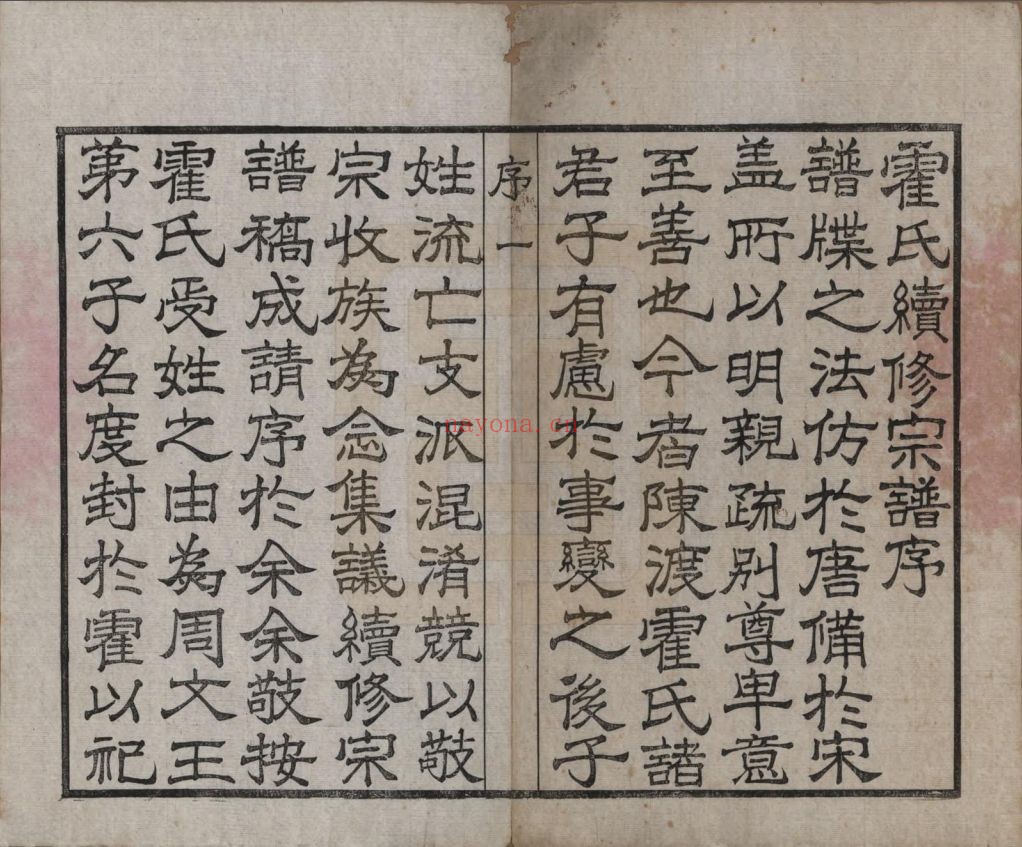 霍氏續修宗譜序
譜牒之法仿於唐備於宋
盖所以明親疏别尊卑意
至善也今者陳渡霍氏諸
君子有慮於事變之後子
序 一
姓流亡支派混淆競以敬
宗收族為念集議續修宗
譜稿成請序於余余敬按
霍氏受姓之由為周文王
苐六子名度封於霍以祀
nayona.cn